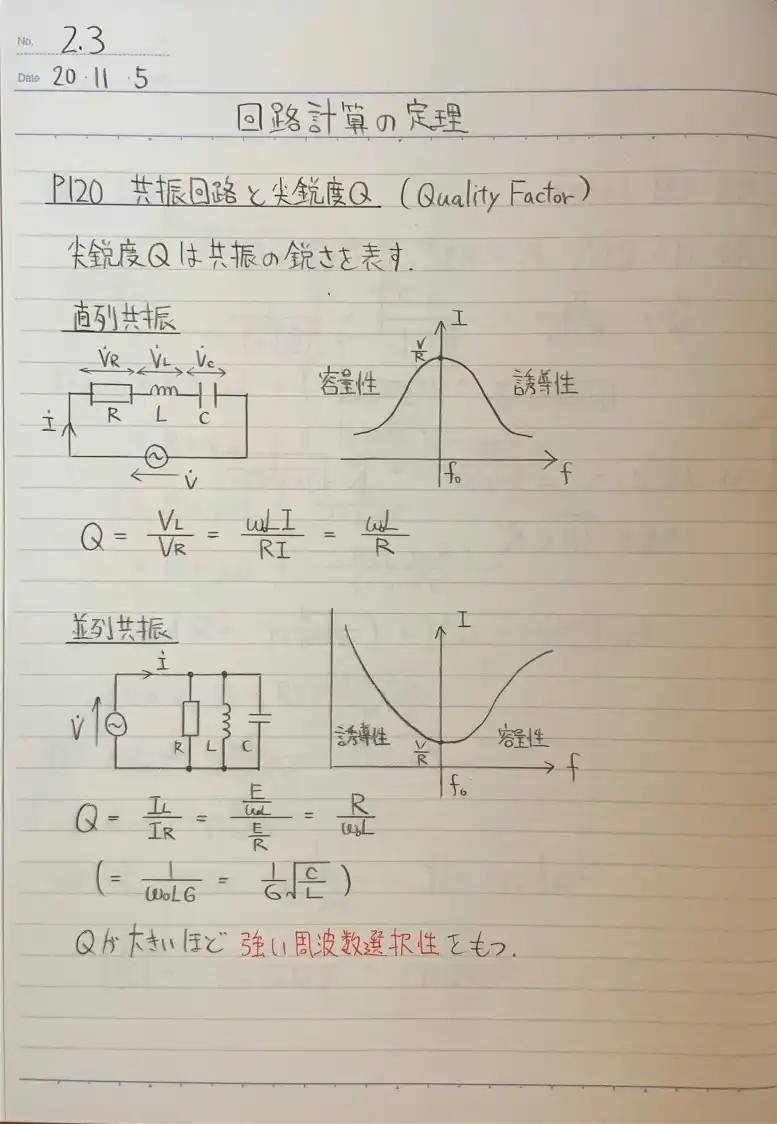 No. 2.3
Date 20・11・5
回路計算の定理
P120 共振回路と尖鋭度Q (Quality Factor)
尖鋭度Qは共振の鋭さを表す.
直列共振
V̇R V̇L V̇c
R L C
İ
V̇
I
V/R
容量性 誘導性
f₀ f
Q = VL/VR = ω₀LI/RI = ω₀L/R
並列共振
İ
V̇
R L C
I
誘導性 V/R 容量性
f₀ f
Q = IL/IR = (E/ω₀L)/(E/R) = R/ω₀L
(= 1/ω₀LG = 1/G √(C/L))
Qが大きいほど強い周波数選択性をもつ.